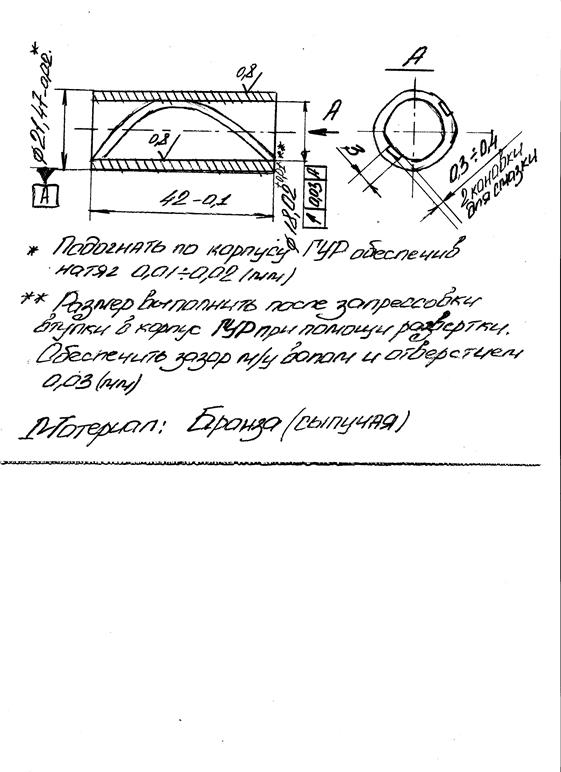 0,8
А
ø21,47-0,02*
А
0,8
А
3
0,3÷0,4
2 канавки
для смазки
42-0,1
ø18,02
0,03 А
* Подогнать по корпусу ГУР обеспечив
натяг 0,01÷0,02 (мм)
** Размер выполнить после запрессовки
втулки в корпус ГУР при помощи развертки.
Обеспечить зазор м/у валом и отверстием
0,03 (мм)
Материал: Бронза (сыпучая)